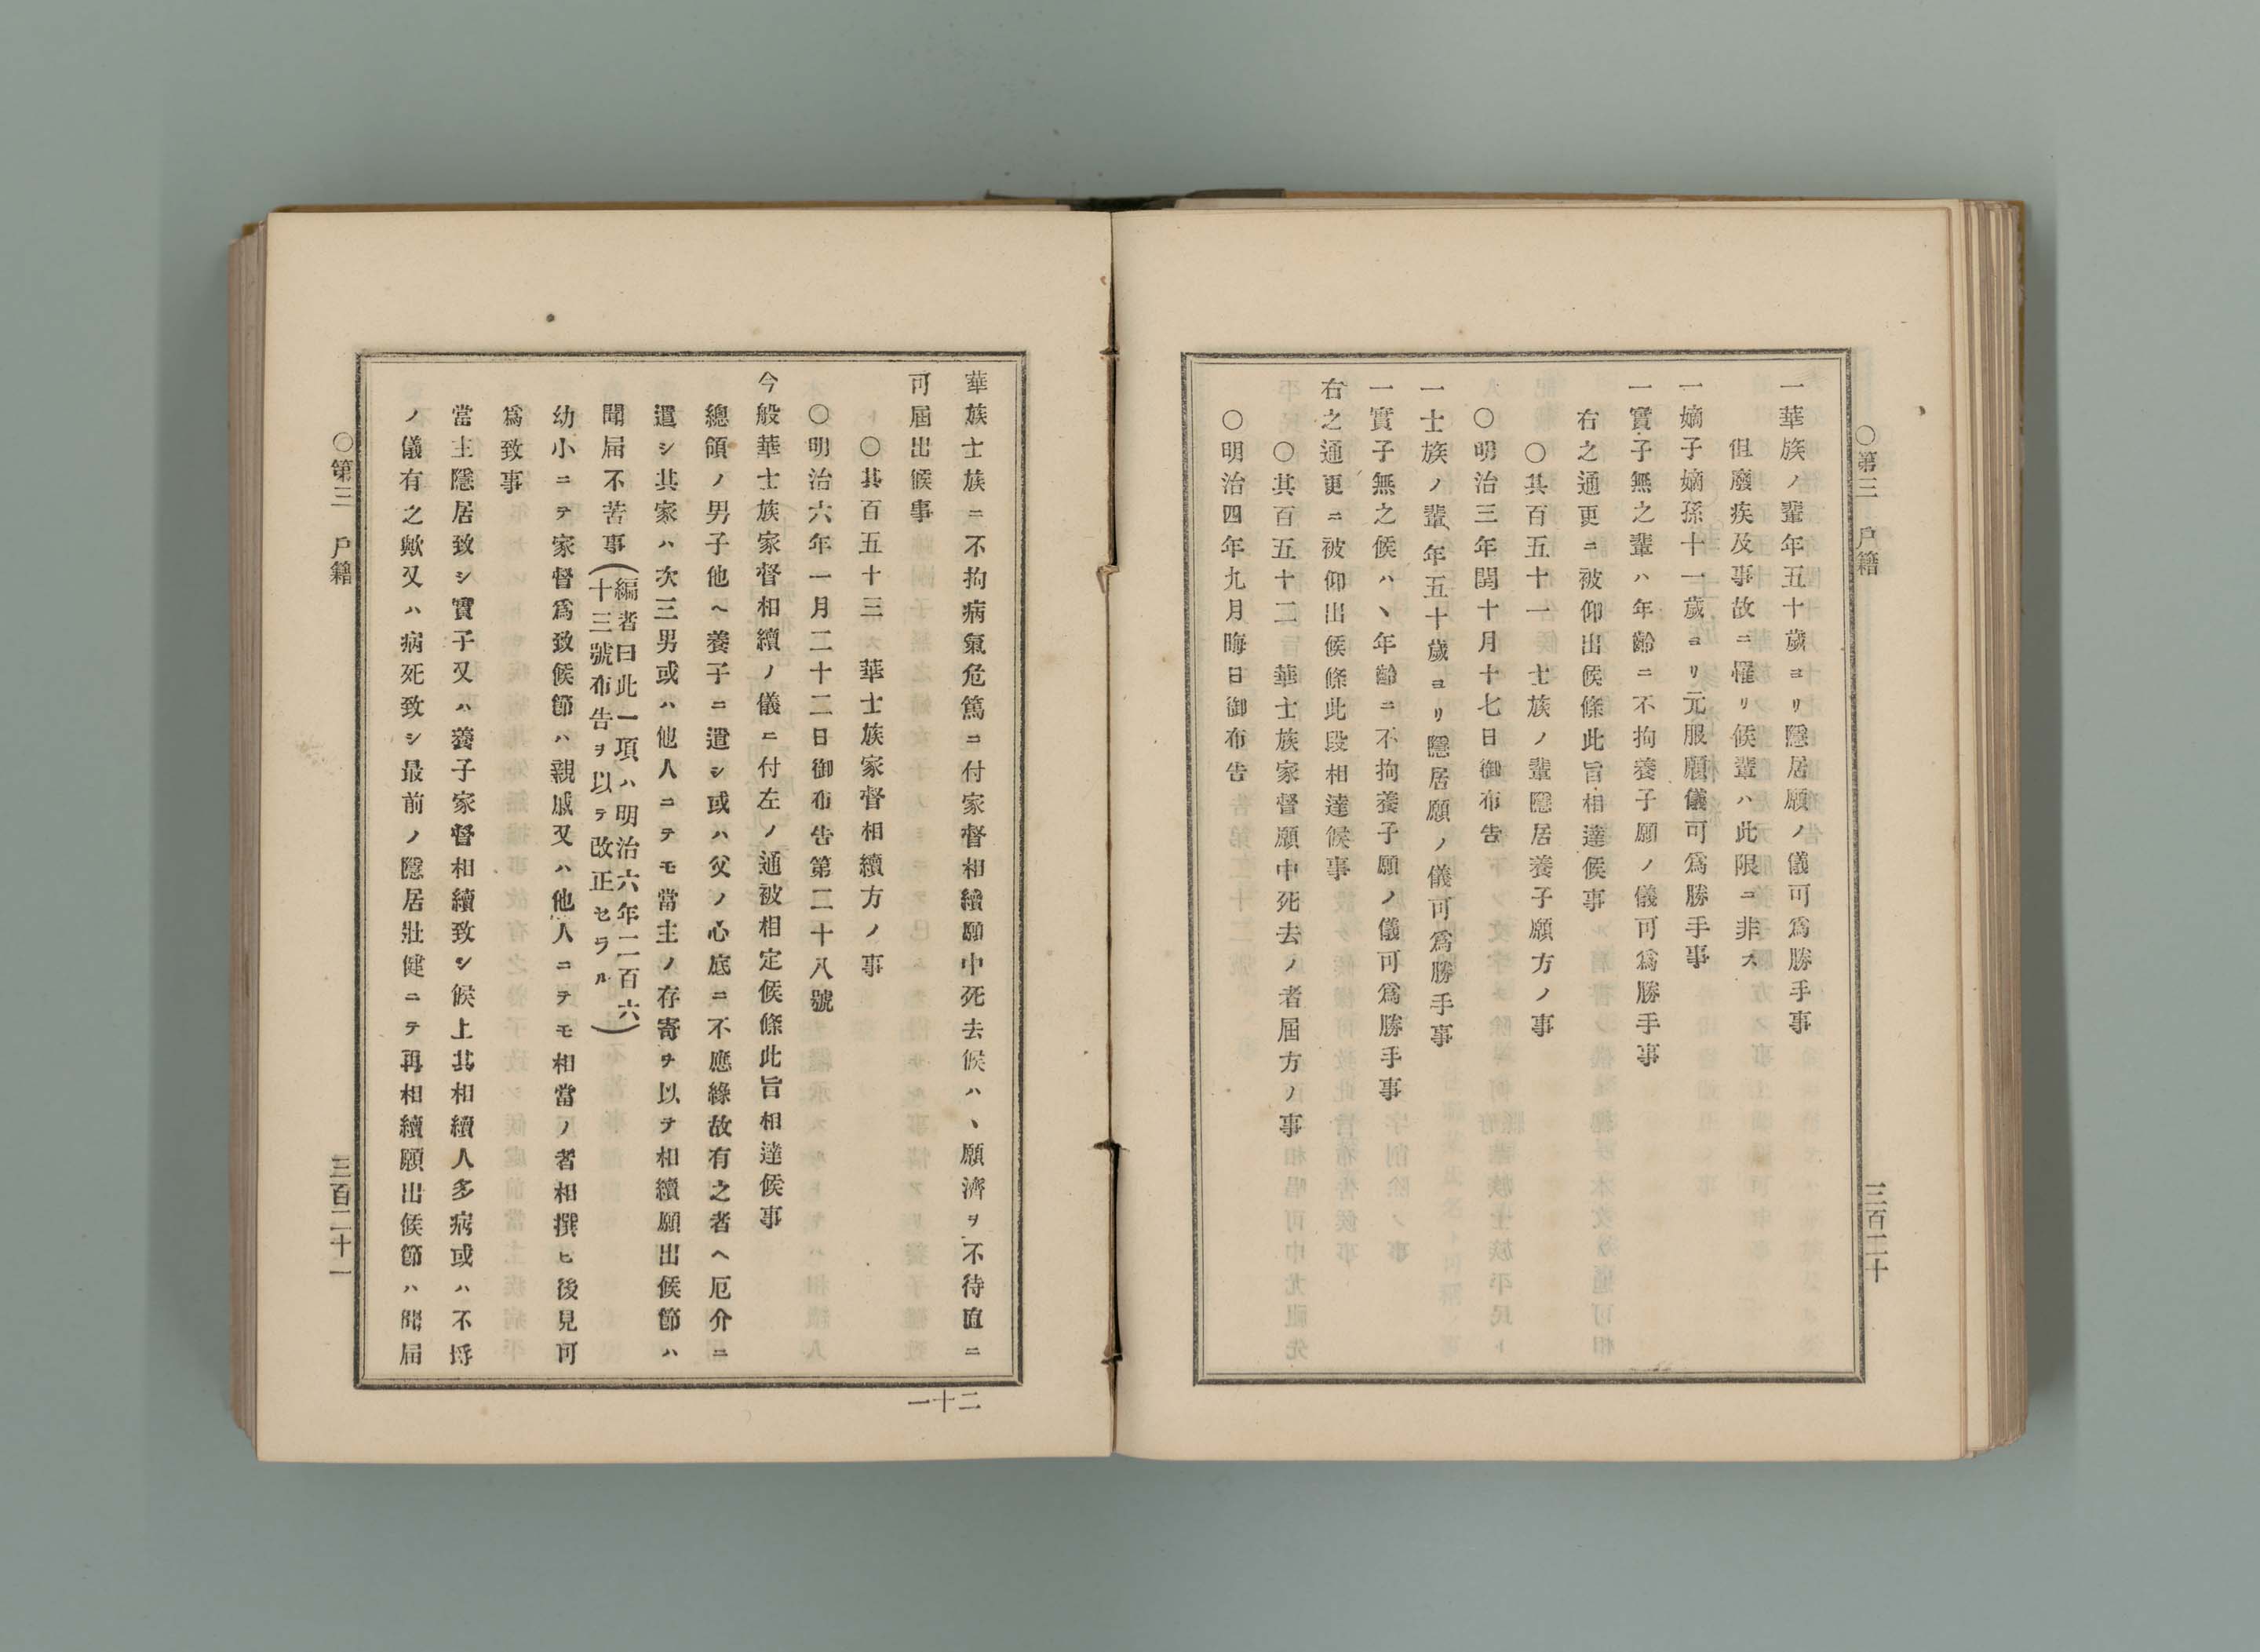 ○第三　戸籍
三百二十
一華族ノ輩年五十歲ヨリ隱居願ノ儀可爲勝手事
但廢疾及事故ニ罹リ候輩ハ此限ニ非ス
一嫡子嫡孫十一歲ヨリ元服願儀可爲勝手事
一實子無之輩ハ年齡ニ不拘養子願ノ儀可爲勝手事
右之通更ニ被仰出候條此旨相達候事
○其百五十一　士族ノ輩隱居養子願方ノ事
○明治三年閏十月十七日御布告
一士族ノ輩、年五十歲ヨリ隱居願ノ儀可爲勝手事
一實子無之候ハ、年齡ニ不拘養子願ノ儀可爲勝手事
右之通更ニ被仰出候條此段相達候事
○其百五十二　華士族家督願中死去ノ者屆方ノ事
○明治四年九月晦日御布告
華族士族ニ不拘病氣危篤ニ付家督相續願中死去候ハ、願濟ヲ不待直ニ
可屆出候事
○其百五十三　華士族家督相續方ノ事
○明治六年一月二十二日御布告第二十八號
今般華士族家督相續ノ儀ニ付左ノ通被相定候條此旨相達候事
總領ノ男子他ヘ養子ニ遣シ或ハ父ノ心底ニ不應緣故有之者ヘ厄介ニ
遣シ其家ハ次三男或ハ他人ニテモ當主ノ存寄ヲ以テ相續願出候節ハ
聞屆不苦事(編者曰此一項ハ明治六年二百六
十三號布告ヲ以テ改正セラル)
幼小ニテ家督爲致候節ハ親戚又ハ他人ニテモ相當ノ者相撰ヒ後見可
爲致事
當主隱居致シ實子又ハ養子家督相續致シ候上其相續人多病或ハ不埓
ノ儀有之歟又ハ病死致シ最前ノ隱居壯健ニテ再相續願出候節ハ聞屆
○第三　戸籍
三百二十一
二十一